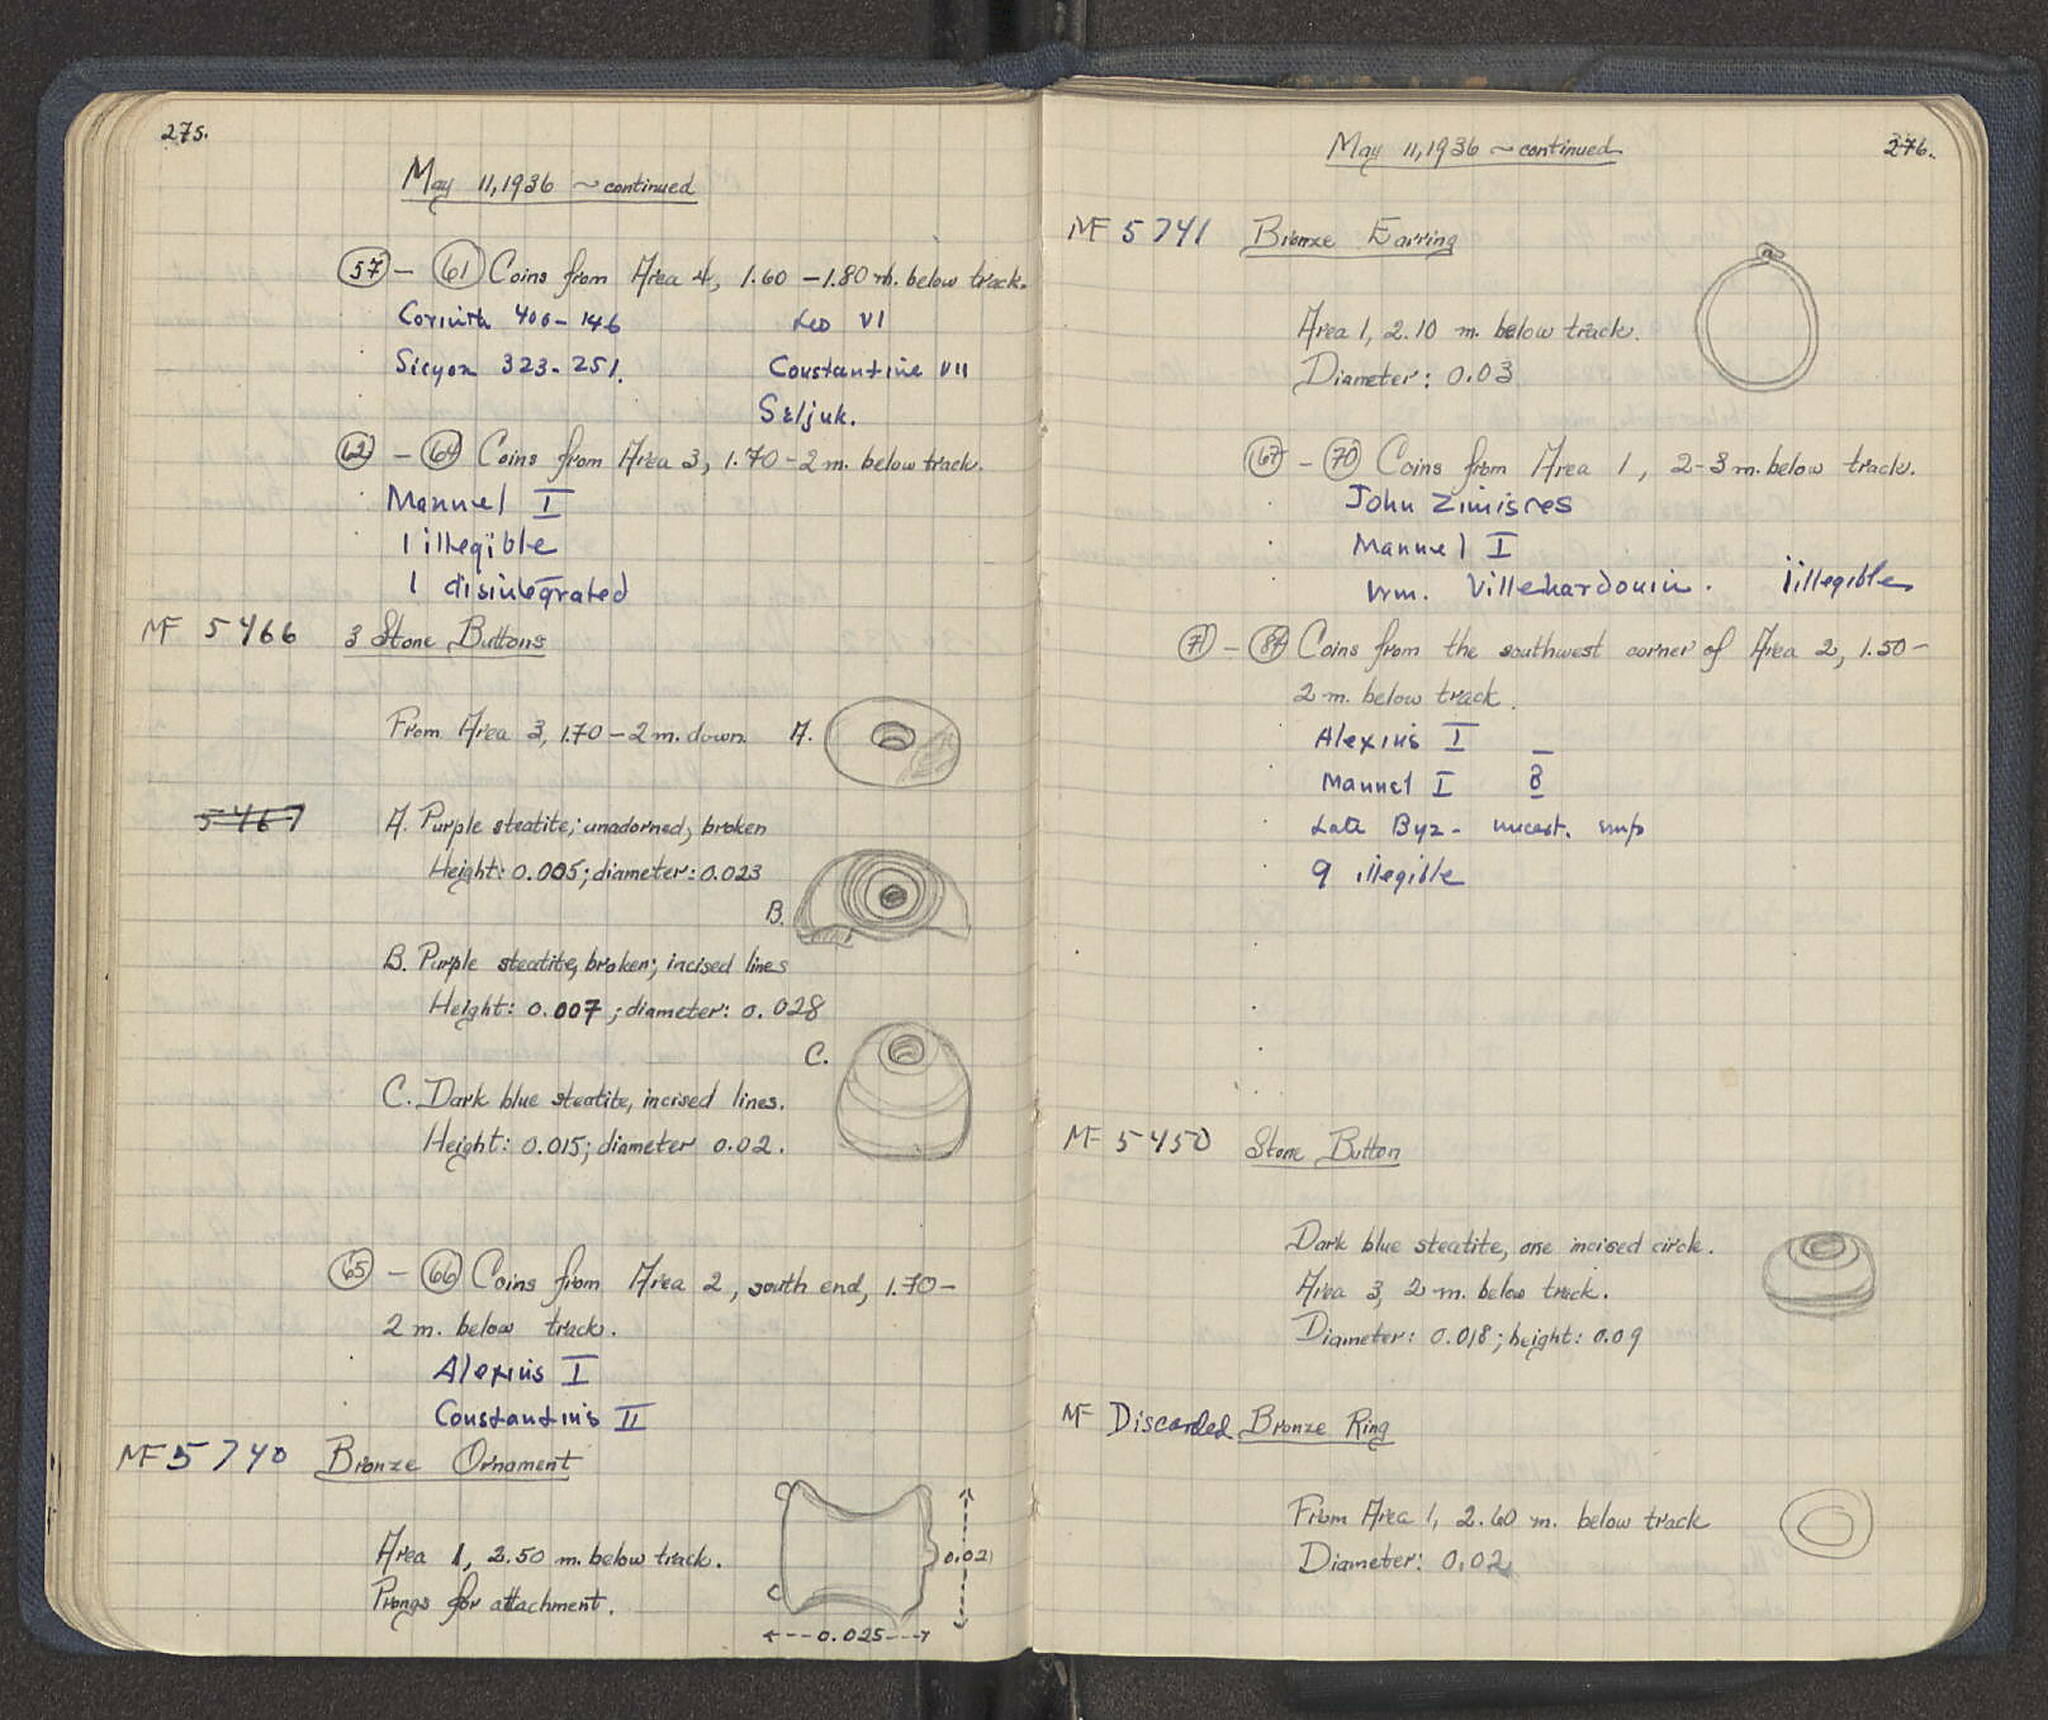 275.
May 11, 1936 ~ continued
57 - 61 Coins from Area 4, 1.60 - 1.80 m. below track.
Corinth 400 - 146 Leo VI
Sicyon 323 - 251. Constantine VII
Seljuk.
62 - 64 Coins from Area 3, 1.70 - 2 m. below track.
Manuel I
1 illegible
1 disintegrated
MF 5466 3 Stone Buttons
From Area 3, 1.70 - 2 m. down. A.
5467 A. Purple steatite; unadorned; broken
Height: 0.005; diameter: 0.023
B.
B. Purple steatite, broken; incised lines
Height: 0.007; diameter: 0.028
C.
C. Dark blue steatite, incised lines.
Height: 0.015; diameter 0.02.
65 - 66 Coins from Area 2, south end, 1.70 -
2 m. below track.
Alexius I
Constantius II
MF 5740 Bronze Ornament
Area 1, 2.50 m. below track. 0.021
Prongs for attachment.
0.025
276.
May 11, 1936 ~ continued
MF 5741 Bronze Earring
Area 1, 2.10 m. below track.
Diameter: 0.03
67 - 70 Coins from Area 1, 2-3 m. below track.
John Zimisces
Manuel I
Wm. Villehardouin. 1 illegible
71 - 84 Coins from the southwest corner of Area 2, 1.50 -
2 m. below track.
Alexius I
Manuel I 3
Late Byz - uncert. emp
9 illegible
MF 5450 Stone Button
Dark blue steatite, one incised circle.
Area 3, 2 m. below track.
Diameter: 0.018; height: 0.09
MF Discarded Bronze Ring
From Area 1, 2.60 m. below track
Diameter: 0.02